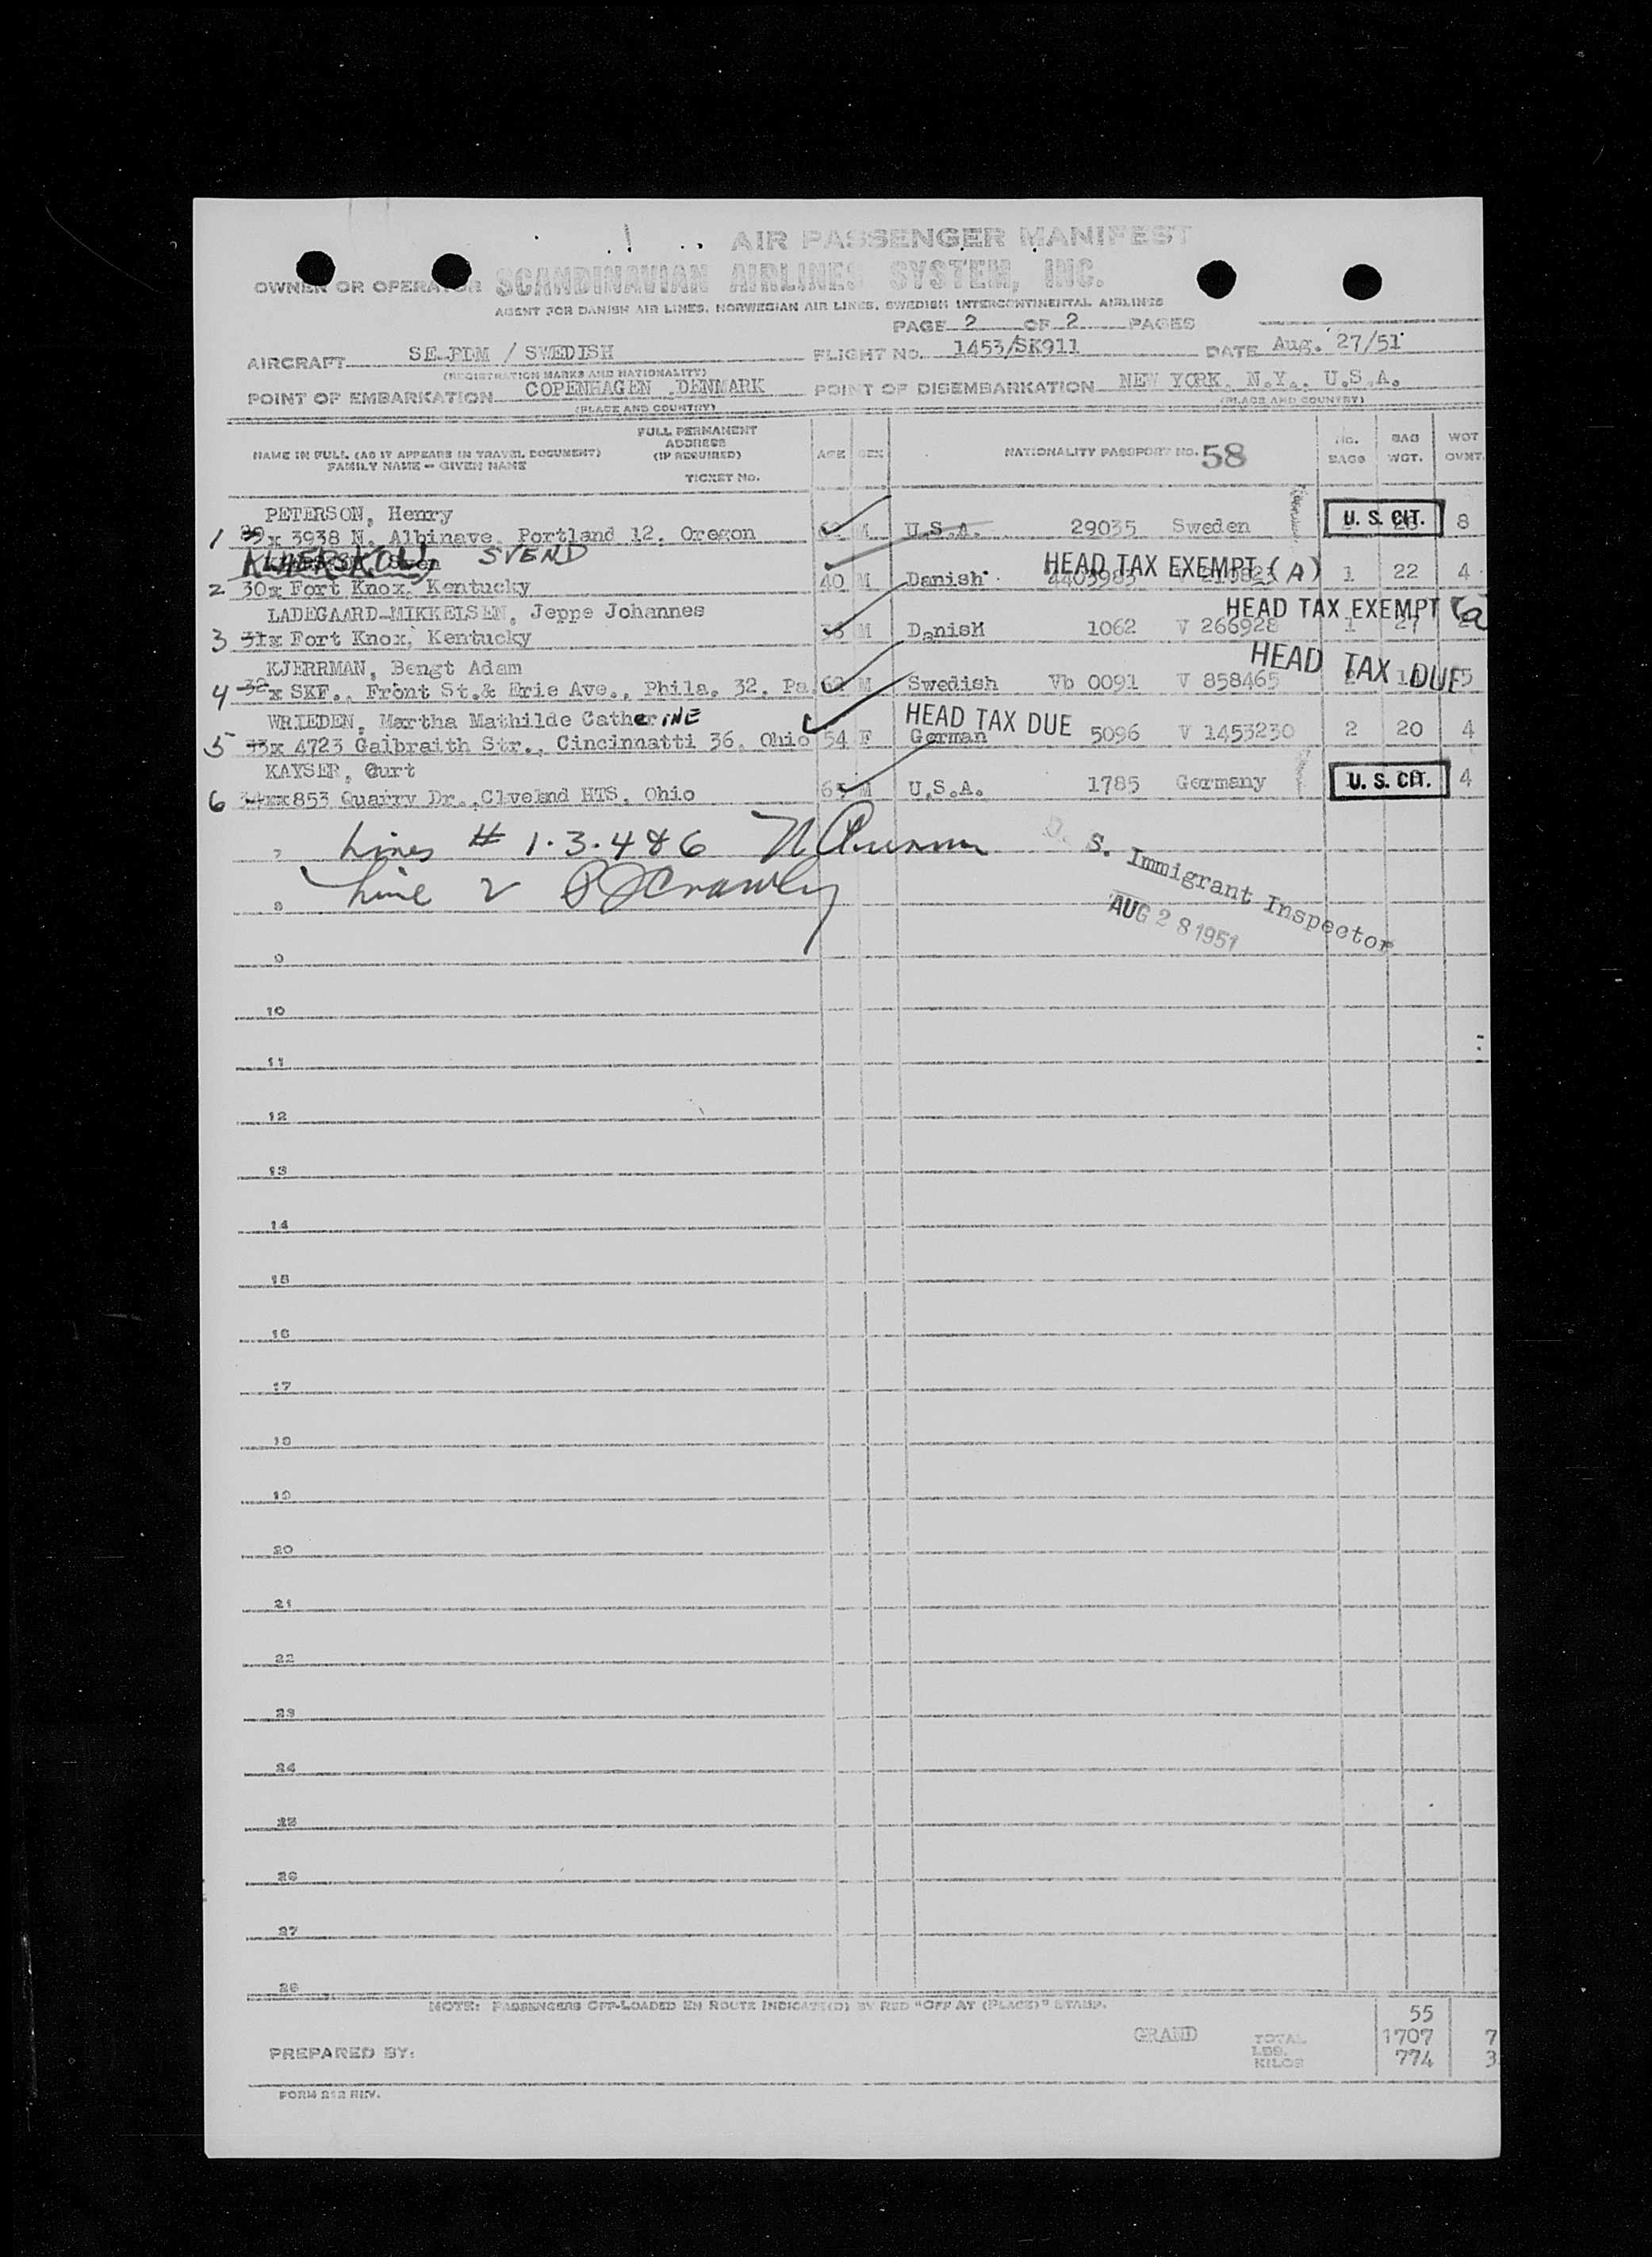 AIR PASSENGER MANIFEST
OWNER OR OPERATOR SCANDINAVIAN AIRLINES SYSTEM, INC.
AGENT FOR DANISH AIR LINES, NORWEGIAN AIR LINES, SWEDISH INTERCONTINENTAL AIRLINES
PAGE 2 OF 2 PAGES
AIRCRAFT SE.BDM / SWEDISH FLIGHT NO. 1453/SK911 DATE Aug. 27/51
(REGISTRATION MARKS AND NATIONALITY)
POINT OF EMBARKATION COPENHAGEN ,DENMARK POINT OF DISEMBARKATION NEW YORK, N.Y., U.S.A.
(PLACE AND COUNTRY) (PLACE AND COUNTRY)
NAME IN FULL (AS IT APPEARS IN TRAVEL DOCUMENT)
FAMILY NAME - GIVEN NAME
FULL PERMANENT
ADDRESS
(IF REQUIRED)
TICKET No.
AGE SEX NATIONALITY PASSPORT NO. 58
No. BAGS BAG WGT. WGT OVWT.
PETERSON, Henry
1 29x 3938 N. Albinave. Portland 12, Oregon M U.S.A. 29035 Sweden U. S. CIT. 8
SVEND
HEAD TAX EXEMPT (A)
2 30x Fort Knox, Kentucky 40 M Danish 1 22 4
LADEGAARD-MIKKELSEN, Jeppe Johannes
HEAD TAX EXEMPT (a
3 31x Fort Knox, Kentucky M Danish 1062 V 266928 1 27
KJERRMAN, Bengt Adam
HEAD TAX DUE
4 32x SKF., Front St.& Erie Ave., Phila. 32. Pa. M Swedish Vb 0091 V 858465 5
WRIEDEN, Martha Mathilde CatherINE
HEAD TAX DUE
5 33x 4723 Galbraith Str., Cincinnatti 36. Ohio 54 F German 5096 V 1453230 2 20 4
KAYSER, Curt
6 xx853 Quarry Dr.,Clveland HTS. Ohio 65 M U.S.A. 1785 Germany U. S. CIT. 4
7 Lines # 1.3.4&6
U. S. Immigrant Inspector
8 Line 2
AUG 28 1951
9
10
11
12
13
14
15
16
17
18
19
20
21
22
23
24
25
26
27
28
NOTE: PASSENGERS OFF-LOADED EN ROUTE INDICATE(D) BY RED "OFF AT (PLACE)" STAMP.
55
GRAND TOTAL
LBS. 1707 7
KILOS 774 3
PREPARED BY:
FORM 212 REV.